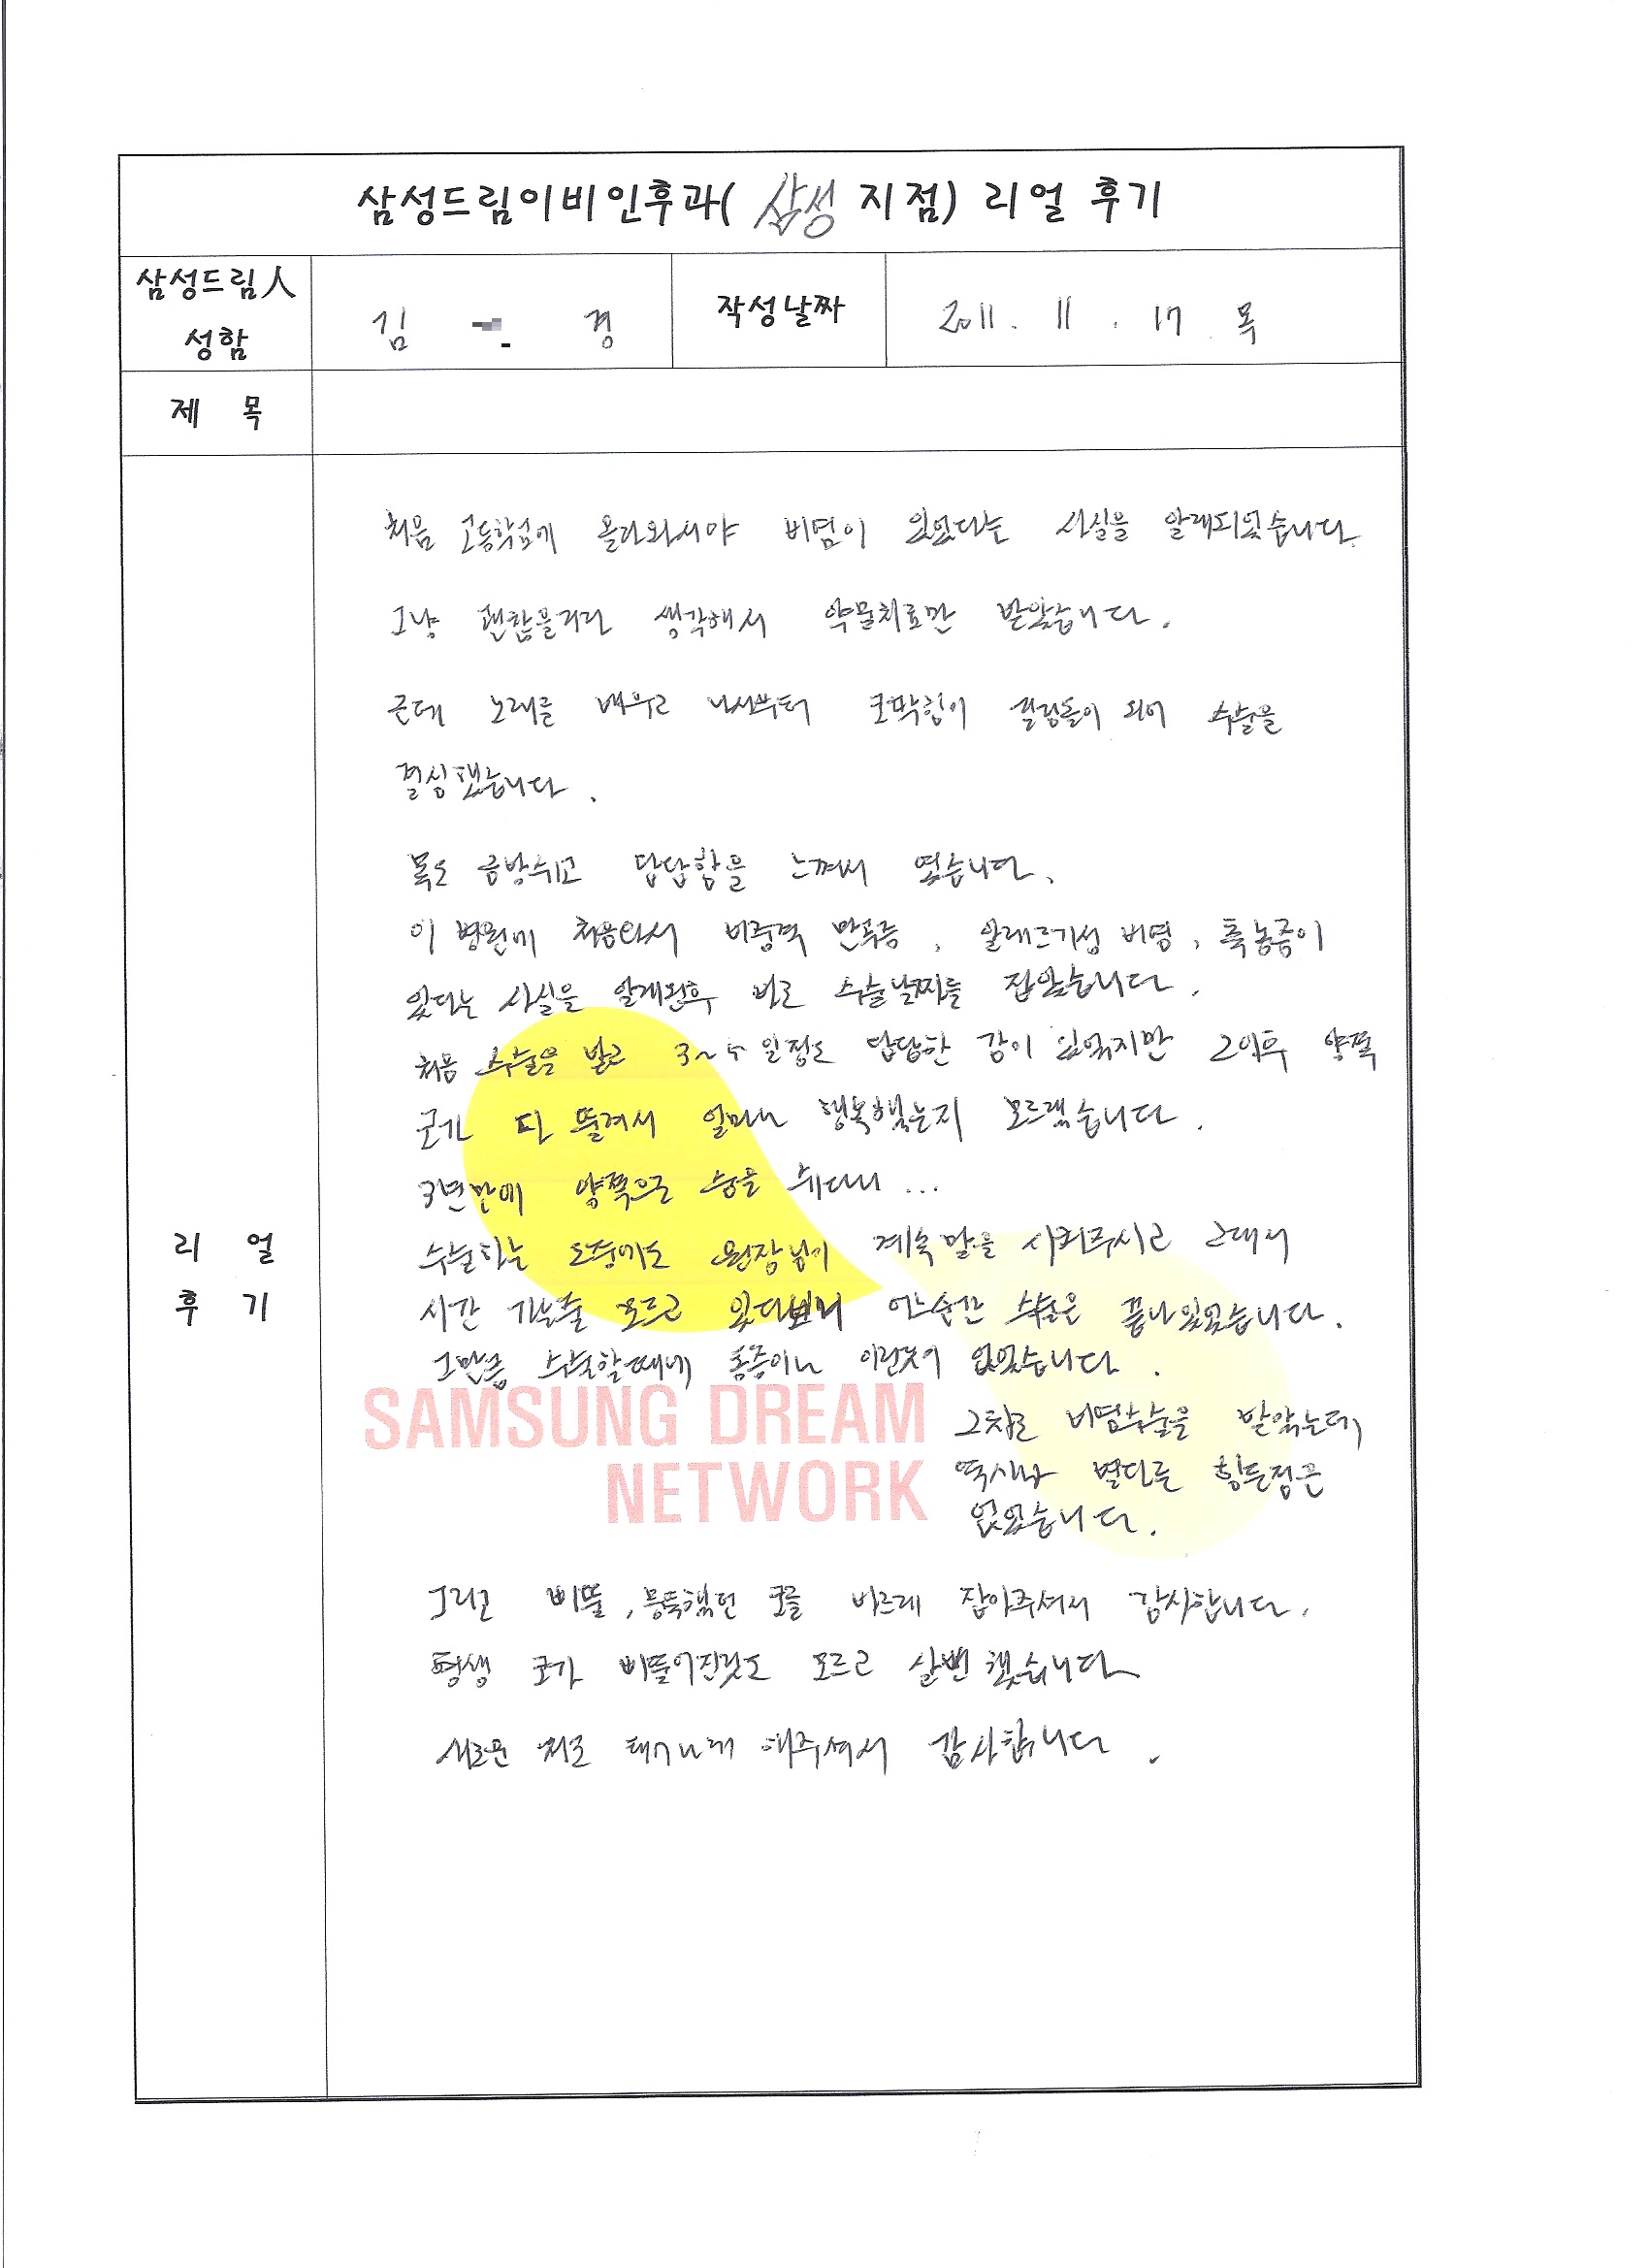 삼성드림이비인후과( 삼성 지점) 리얼 후기
삼성드림人
성함
김 경
작성날짜
2011. 11. 17. 목
제 목
처음 고등학교에 올라와서야 비염이 있었다는 사실을 알게되었습니다.
그냥 괜찮을거라 생각해서 약물치료만 받았습니다.
근데 노래를 배우고 나서부터 코막힘이 걸림돌이 되어 수술을
결심했습니다.
목도 금방쉬고 답답함을 느껴서 였습니다.
이 병원에 처음와서 비중격 만곡증, 알레르기성 비염, 축농증이
있다는 사실을 알게된후 바로 수술날짜를 잡았습니다.
처음 수술을 받고 3~4일정도 답답한 감이 있었지만 그이후 양쪽
코가 다 뚫려서 얼마나 행복했는지 모르겠습니다.
3년만에 양쪽으로 숨을 쉬다니...
수술하는 도중에도 원장님이 계속 말을 시켜주시고 그래서
시간 가는줄 모르고 있다보니 어느순간 수술은 끝나있었습니다.
그만큼 수술할때에 통증이나 이런것이 없었습니다.
그 비염수술을 받았는데,
역시나 별다른 힘든점은
없었습니다.
그리고 삐뚤, 뭉뚝했던 코를 바르게 잡아주셔서 감사합니다.
평생 코가 삐뚤어진것도 모르고 살뻔 했습니다
새로운 저로 태어나게 해주셔서 감사합니다.
리 얼
후 기
SAMSUNG DREAM
NETWORK